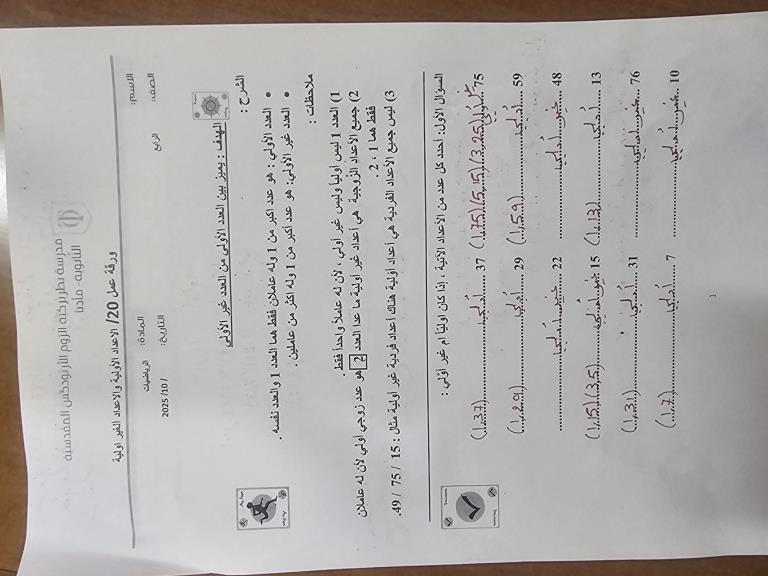 مدرسة بطريركية الروم الأرثوذكس المقدسية
الثانوية- مادبا
ورقة عمل 20/ الاعداد الأولية والاعداد الغير اولية
الاسم: المادة: الرياضيات
الصف: الرابع التاريخ: 2025 /10 /
الهدف : يميز بين العدد الأولي من العدد غير الأولي
الشرح :
• العدد الأولي : هو عدد اكبر من 1 وله عاملان فقط هما العدد 1 والعدد نفسه .
• العدد غير الأولي: هو عدد اكبر من 1 وله اكثر من عاملين .
ملاحظات :
1) العدد 1 ليس أولياً وليس غير أولي ، لأن له عاملاً واحداً فقط.
2) جميع الأعداد الزوجية هي أعداد غير أولية ما عدا العدد 2 هو عدد زوجي أولي لأن له عاملان
فقط هما 1 ، 2 .
3) ليس جميع الأعداد الفردية هي أعداد أولية هناك أعداد فردية غير أولية مثال : 15 / 75 / 49.
السؤال الأول: احدد كل عدد من الأعداد الآتية ، إذا كان اولياً ام غير اولي :
75 غير أولي (3,25)(5,15)(1,75) 37 أولي (1,37)
59 أولي (1,59) 29 أولي (1,29)
48 غير أولي 22 غير أولي
13 أولي (1,13) 15 غير أولي (3,5)(1,15)
76 غير أولي 31 أولي (1,31)
10 غير أولي 7 أولي (1,7)
1